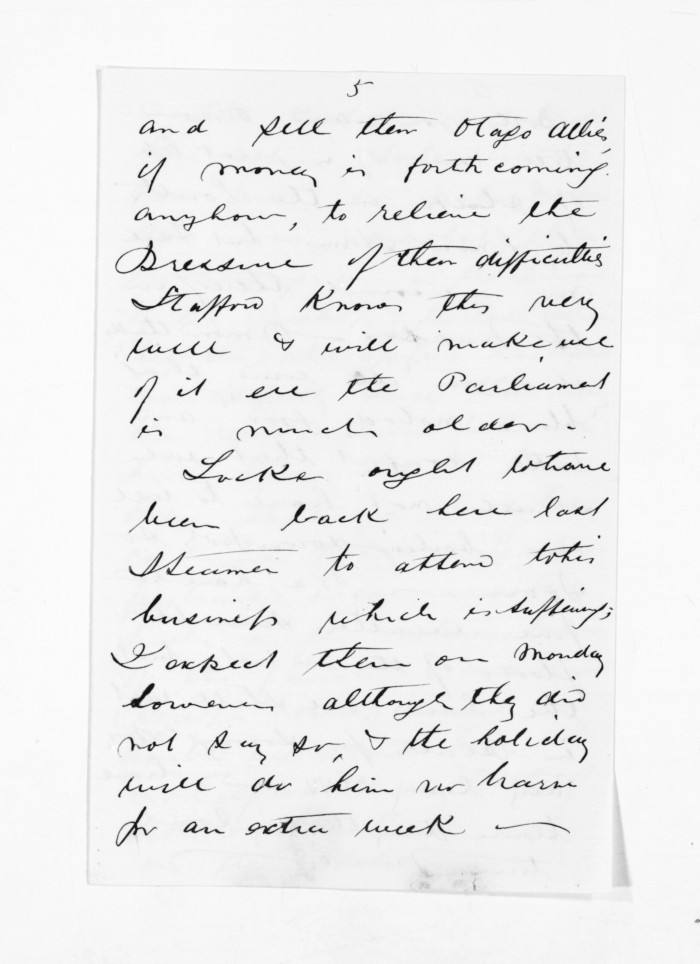 5
and sell their Otago Allies,
if money is forthcoming
anyhow, to relieve the
Pressure of their difficulties
Stafford Knows this very
well & will make use
of it ere the Parliament
is much older -
Locke ought to have
been back here last
Steamer to attend to his
business which is suffering;
I expect them on Monday
however although they did
not say so, & the holiday
will do him no harm
for an extra week —